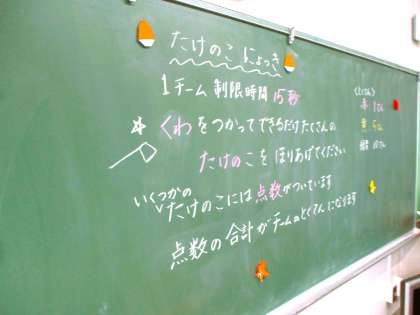 たけのこ にょっき
1チーム 制限時間 15秒
くわをつかってできるだけたくさんの
たけのこをほりあげてください
いくつかの
たけのこには点数がついています
点数の合計がチームのとくてんになります
〈とくてん〉
赤 1てん
黄 5てん